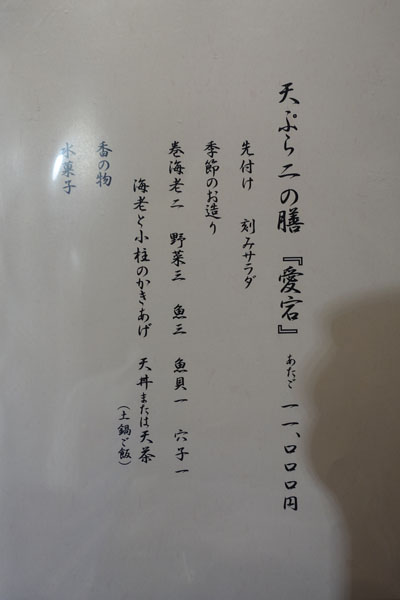 天ぷら二の膳『愛宕』 あたご 一一、〇〇〇円
先付け 刻みサラダ
季節のお造り
巻海老二 野菜三 魚三 魚貝一 穴子一
海老と小柱のかきあげ 天丼または天茶
(土鍋ご飯)
香の物
水菓子